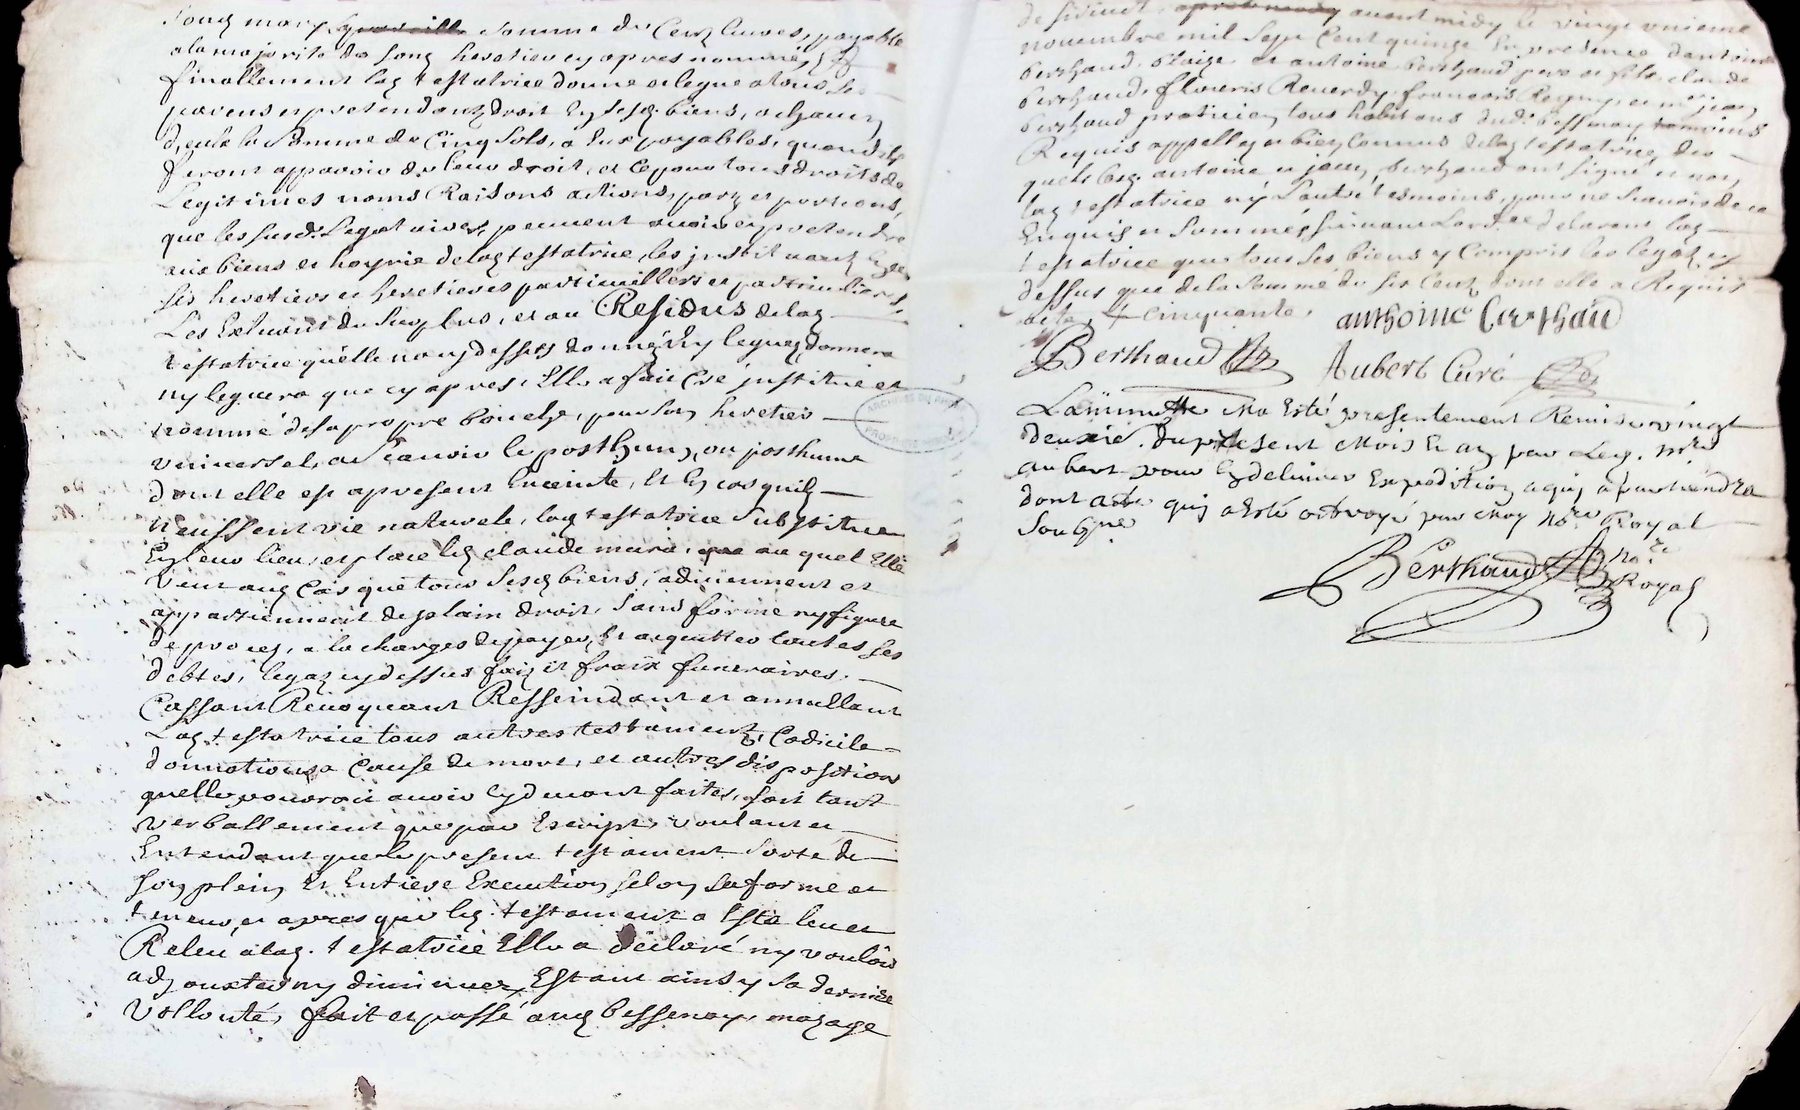 somme de Cent livres, payable
a la majorité de son heretier cy apres nommé,
finallement lad testatrice donne et legue a tous ses
parens et pretendants droit en sesd biens, a chacun
d'eux la somme de Cinq sols, a eux payables, quand ils
feront apparoir de leur droit, et ce pour tous droits de
Legitimes noms Raisons actions, parts et portions,
que les susds Legataires, peuvent avoir et pretendre
aux biens et hoyrie de lad testatrice, les instituant
ses heretiers et heretieres particuilliers et particulieres,
Les Excluant du surplus, et au Residus de lad
testatrice qu'elle na cy dessus donné ny legué, donnera
ny leguera que cy apres, Elle a fait Créé institué et
nommé de sa propre bouche, pour son heretier
universel, a scavoir le posthume, ou posthume
dont elle est a present Enceinte, Et En cas quils
neussent vie naturele, lad testatrice substitue
En leur lieu, et place led claude marie, auquel Elle
veut aud Cas que tous sesd biens, adviennent et
appartiennent de plain droit, sans forme ny figure
de proces, a la charge de payer, Et acquitter toutes ses
debtes, legaz cy dessus faiz et fraix funeraires.
Cassant Revoquant Resseindant et annullant
Lad testatrice tous autres testament, Codicile
donnations a Cause de mort, et autres disposition
quelle pourroit avoir cy devant faites, soit tant
verballement que par Escript, voulant et
Entendant que le present testament sorte de
son plein Et Entiere Execution selon sa forme et
teneur, et apres que led. testament a Esté leu et
Releu a lad. testatrice Elle a declaré ny vouloir
adjouxter ny diminuer, Estant ainsy sa derniere
vollonté, fait et passé aud bessenay,
avant midy le vingt unieme
novembre mil sept Cent quinze En presence dantoine
berthaud, blaize et antoine berthaud pere et fils, claude
berthaud, fleuris Reverdy, francois Reymy, et me jean
berthaud praticien tous habitans dud. bessenay temoins
Requis appellés et bien Connus de lad testatrice, des
quels lesd. antoine et jean, berthaud ont signé et non
lad testatrice ny Lautres tesmoins, pour ne scavoir de ce
Enquis et sommés suivant Lord.ce declarant lad
testatrice que tous ses biens y Compris les legaz cy
dessus que de la somme de six Cent dont elle a Requis
acte, cinquante, anthoine berthaud
Berthaud Aubert Curé
La minutte Ma Esté presentement Remise ce vingt
deuxie. du present Mois Et an par Led. mre
aubert pour En delivrer Expedition a qui apartiendra
dont acte qui a Esté octroyé par Moy nore Royal
Soubne
Berthaud Nore
Royal